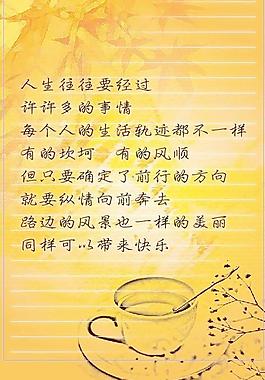 人生往往要经过
许许多多的事情
每个人的生活轨迹都不一样
有的坎坷　有的风顺
但只要确定了前行的方向
就要纵情向前奔去
路边的风景也一样的美丽
同样可以带来快乐